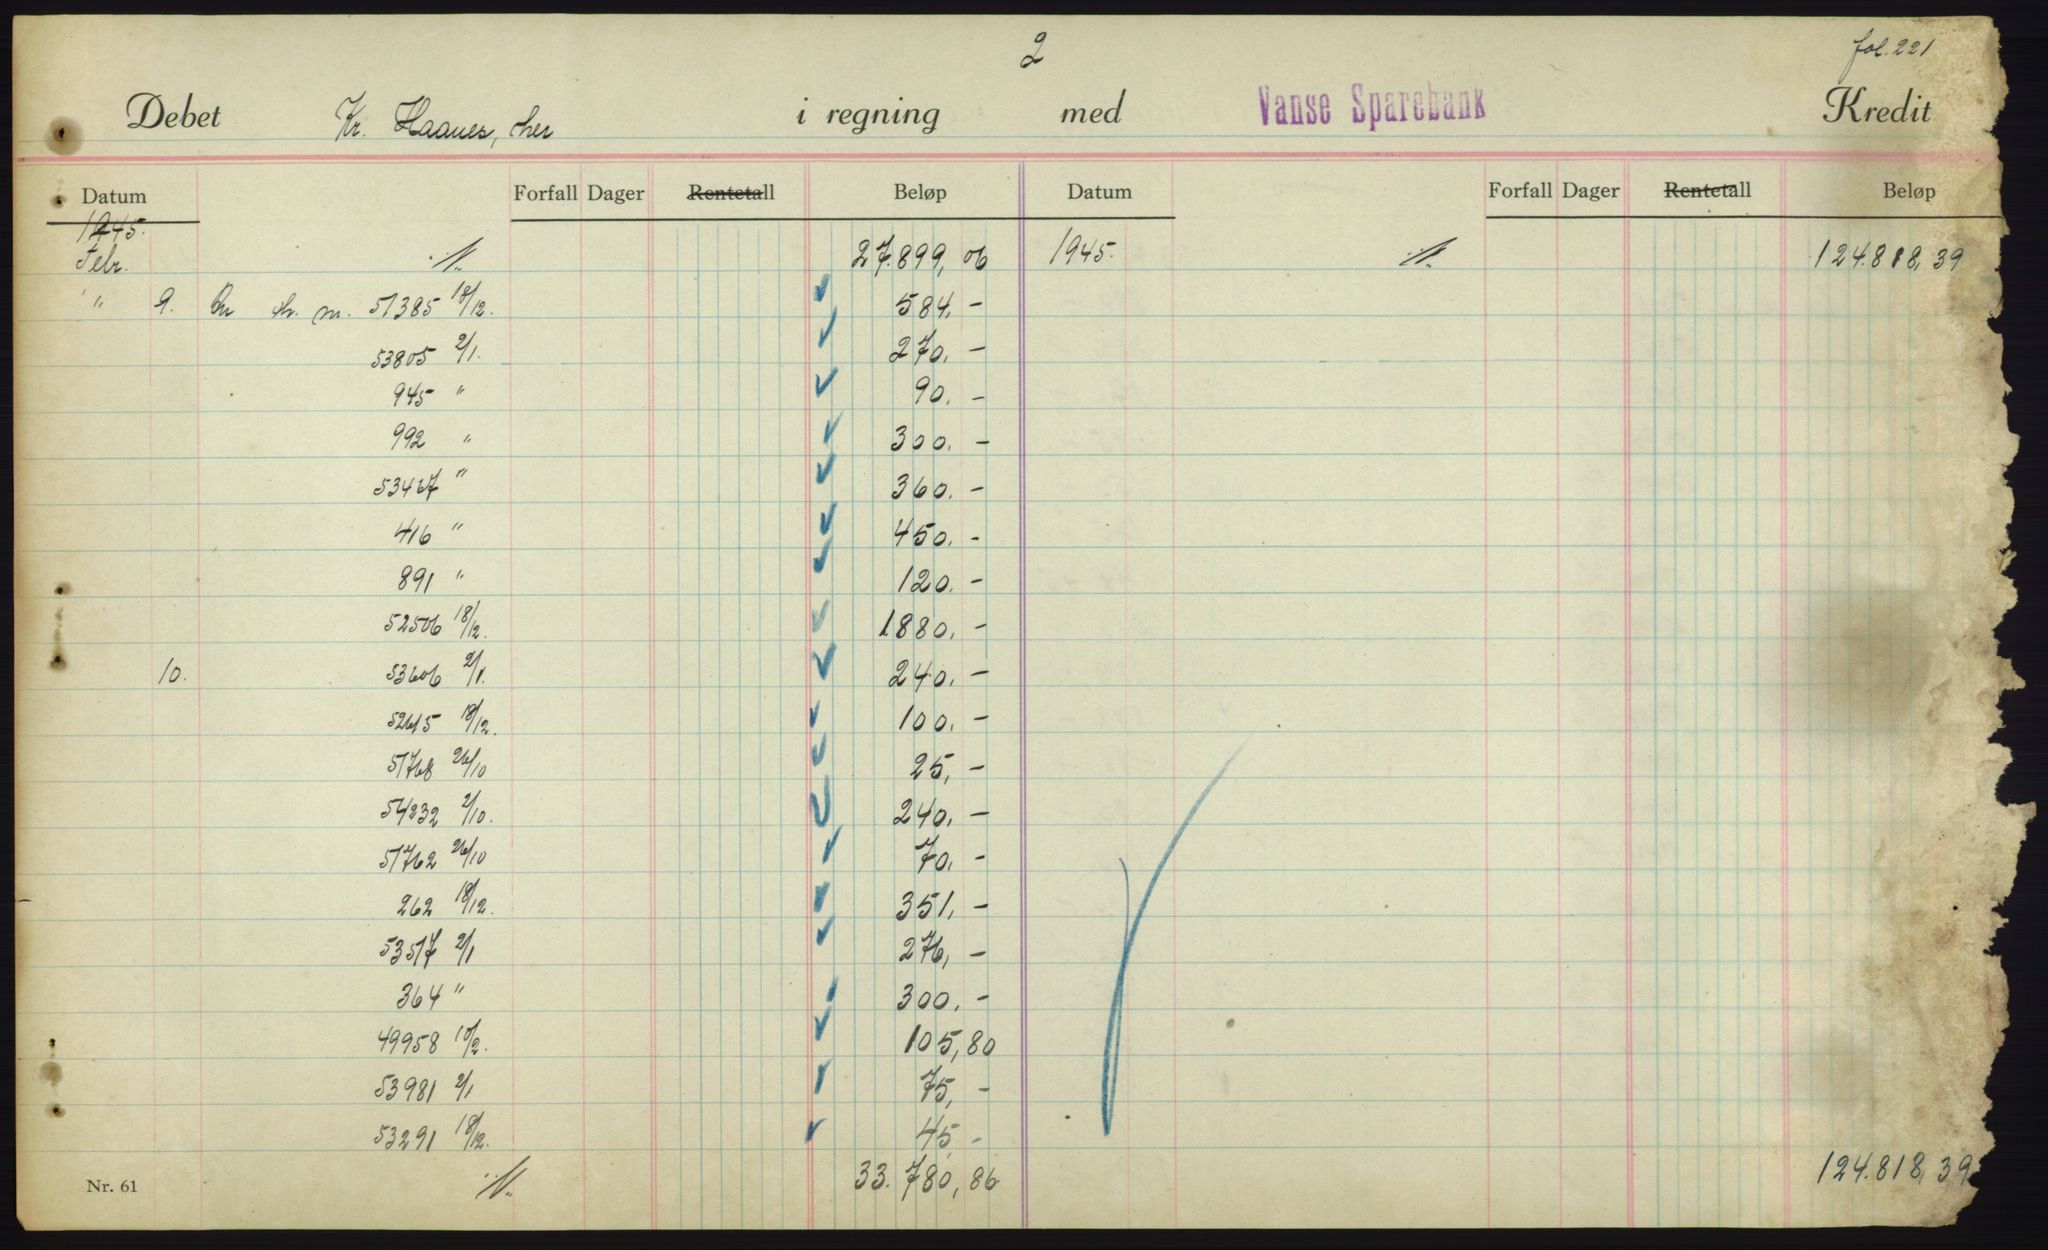 2
fol. 221
Debet Kr. Haanes, her i regning med Vanse Sparebank Kredit
Datum Forfall Dager Rentetall Beløp Datum Forfall Dager Rentetall Beløp
1945.
Febr. 27.899,06 1945. 124.818,39
" 9. 51385 18/12. 584,-
53805 2/1. 270,-
945 " 90.-
992 " 300.-
53467 " 360.-
416 " 450.-
891 " 120.-
52506 18/12. 1880.-
10. 53606 2/1. 240.-
52615 18/12. 100.-
51768 26/10 25,-
54232 2/10. 240,-
51762 26/10 70,-
262 18/12. 351,-
53517 2/1 276,-
364 " 300.-
49958 10/2. 105,80
53981 2/1 75,-
53291 18/12. 45,-
Nr. 61 33.780,86 124.818,39